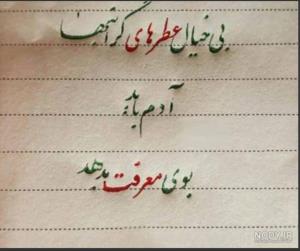 بی خیال عطرهای گرانبها
آدم باید
بوی معرفت بدهد
NOOX.IR